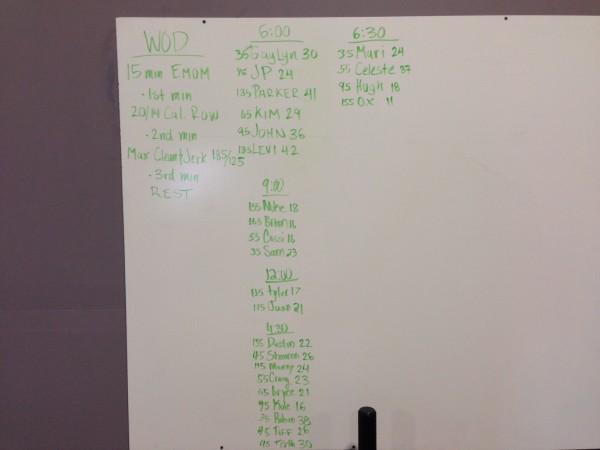 WOD
15 min EMOM
· 1st min
20/14 Cal. Row
· 2nd min
Max Clean+Jerk 185/125
· 3rd min
REST
6:00
35 Gaylyn 30
JP 24
135 PARKER 41
65 KIM 29
95 JOHN 36
135 LEVI 42
9:00
155 Mike 18
165 Brian 16
55 Cassi 16
35 Sam 23
12:00
135 Tyler 17
115 Juan 21
4:30
155 Dustin 22
45 Shannon 26
115 Manny 24
55 Craig 23
65 Bryce 21
95 Kyle 16
38
45 Tiff 26
95 30
6:30
35 Mari 24
55 Celeste 37
95 Hugh 18
155 OX 11